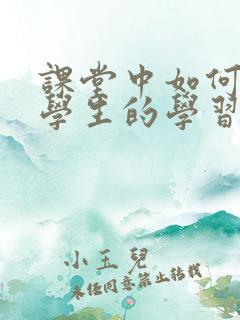 課堂中如何
學生的學習
小玉兒
未經同意禁止轉載